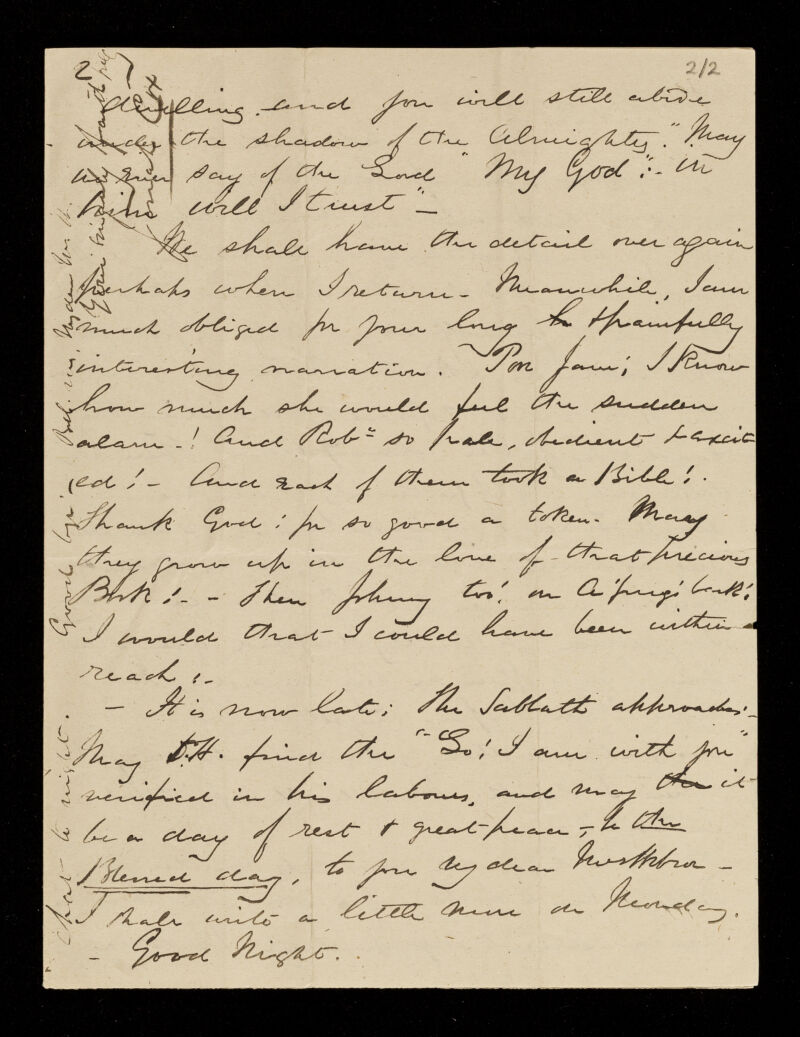 2
2/2
dwelling and you will still abide
under the shadow of the Almighty." May
we ever say of the Lord "My God": in
him will I trust" –
We shall have the detail over again
perhaps when I return – Meanwhile, I am
much obliged for your long & painfully
interesting narration. Poor Jane; I know
how much she would feel the sudden
alarm –! And Robt so pale, obedient & excit
ed! – And each of them took a Bible!
Thank God! for so good a token. May
they grow up in the love of that precious
Book! – – Then Johnny too! on back!
I would that I could have been within
reach! –
– It is now late; The Sabbath approaches –
May find the "Lo! I am with you"
verified in his labours, and may the it
be a day of rest & great peace, the
Blessed day, to you my dear
I shall write a little more on Monday.
– Good Night.
that to night. Good bye. my dear Mrs H.
Your